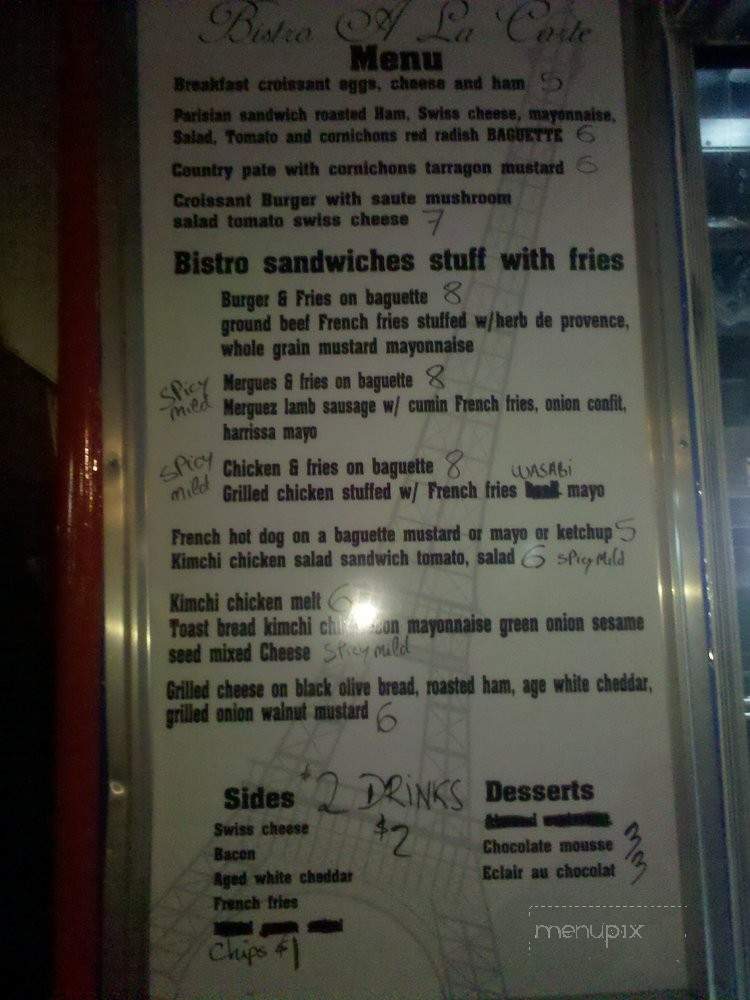 Bistro A La Carte
Menu
Breakfast croissant eggs, cheese and ham 5
Parisian sandwich roasted Ham, Swiss cheese, mayonnaise,
Salad, Tomato and cornichons red radish BAGUETTE 6
Country pate with cornichons tarragon mustard 6
Croissant Burger with saute mushroom
salad tomato swiss cheese 7
Bistro sandwiches stuff with fries
Burger & Fries on baguette 8
ground beef French fries stuffed w/herb de provence,
whole grain mustard mayonnaise
Spicy mild
Mergues & fries on baguette 8
Merguez lamb sausage w/ cumin French fries, onion confit,
harrissa mayo
Spicy mild
Chicken & fries on baguette 8
Grilled chicken stuffed w/ French fries WASABi mayo
French hot dog on a baguette mustard or mayo or ketchup 5
Kimchi chicken salad sandwich tomato, salad 6 Spicy Mild
Kimchi chicken melt 6
Toast bread kimchi mayonnaise green onion sesame
seed mixed Cheese Spicy mild
Grilled cheese on black olive bread, roasted ham, age white cheddar,
grilled onion walnut mustard 6
Sides $2 DRINKS $2
Swiss cheese
Bacon
Aged white cheddar
French fries
Chips $1
Desserts
Chocolate mousse 3
Eclair au chocolat 3
menupix